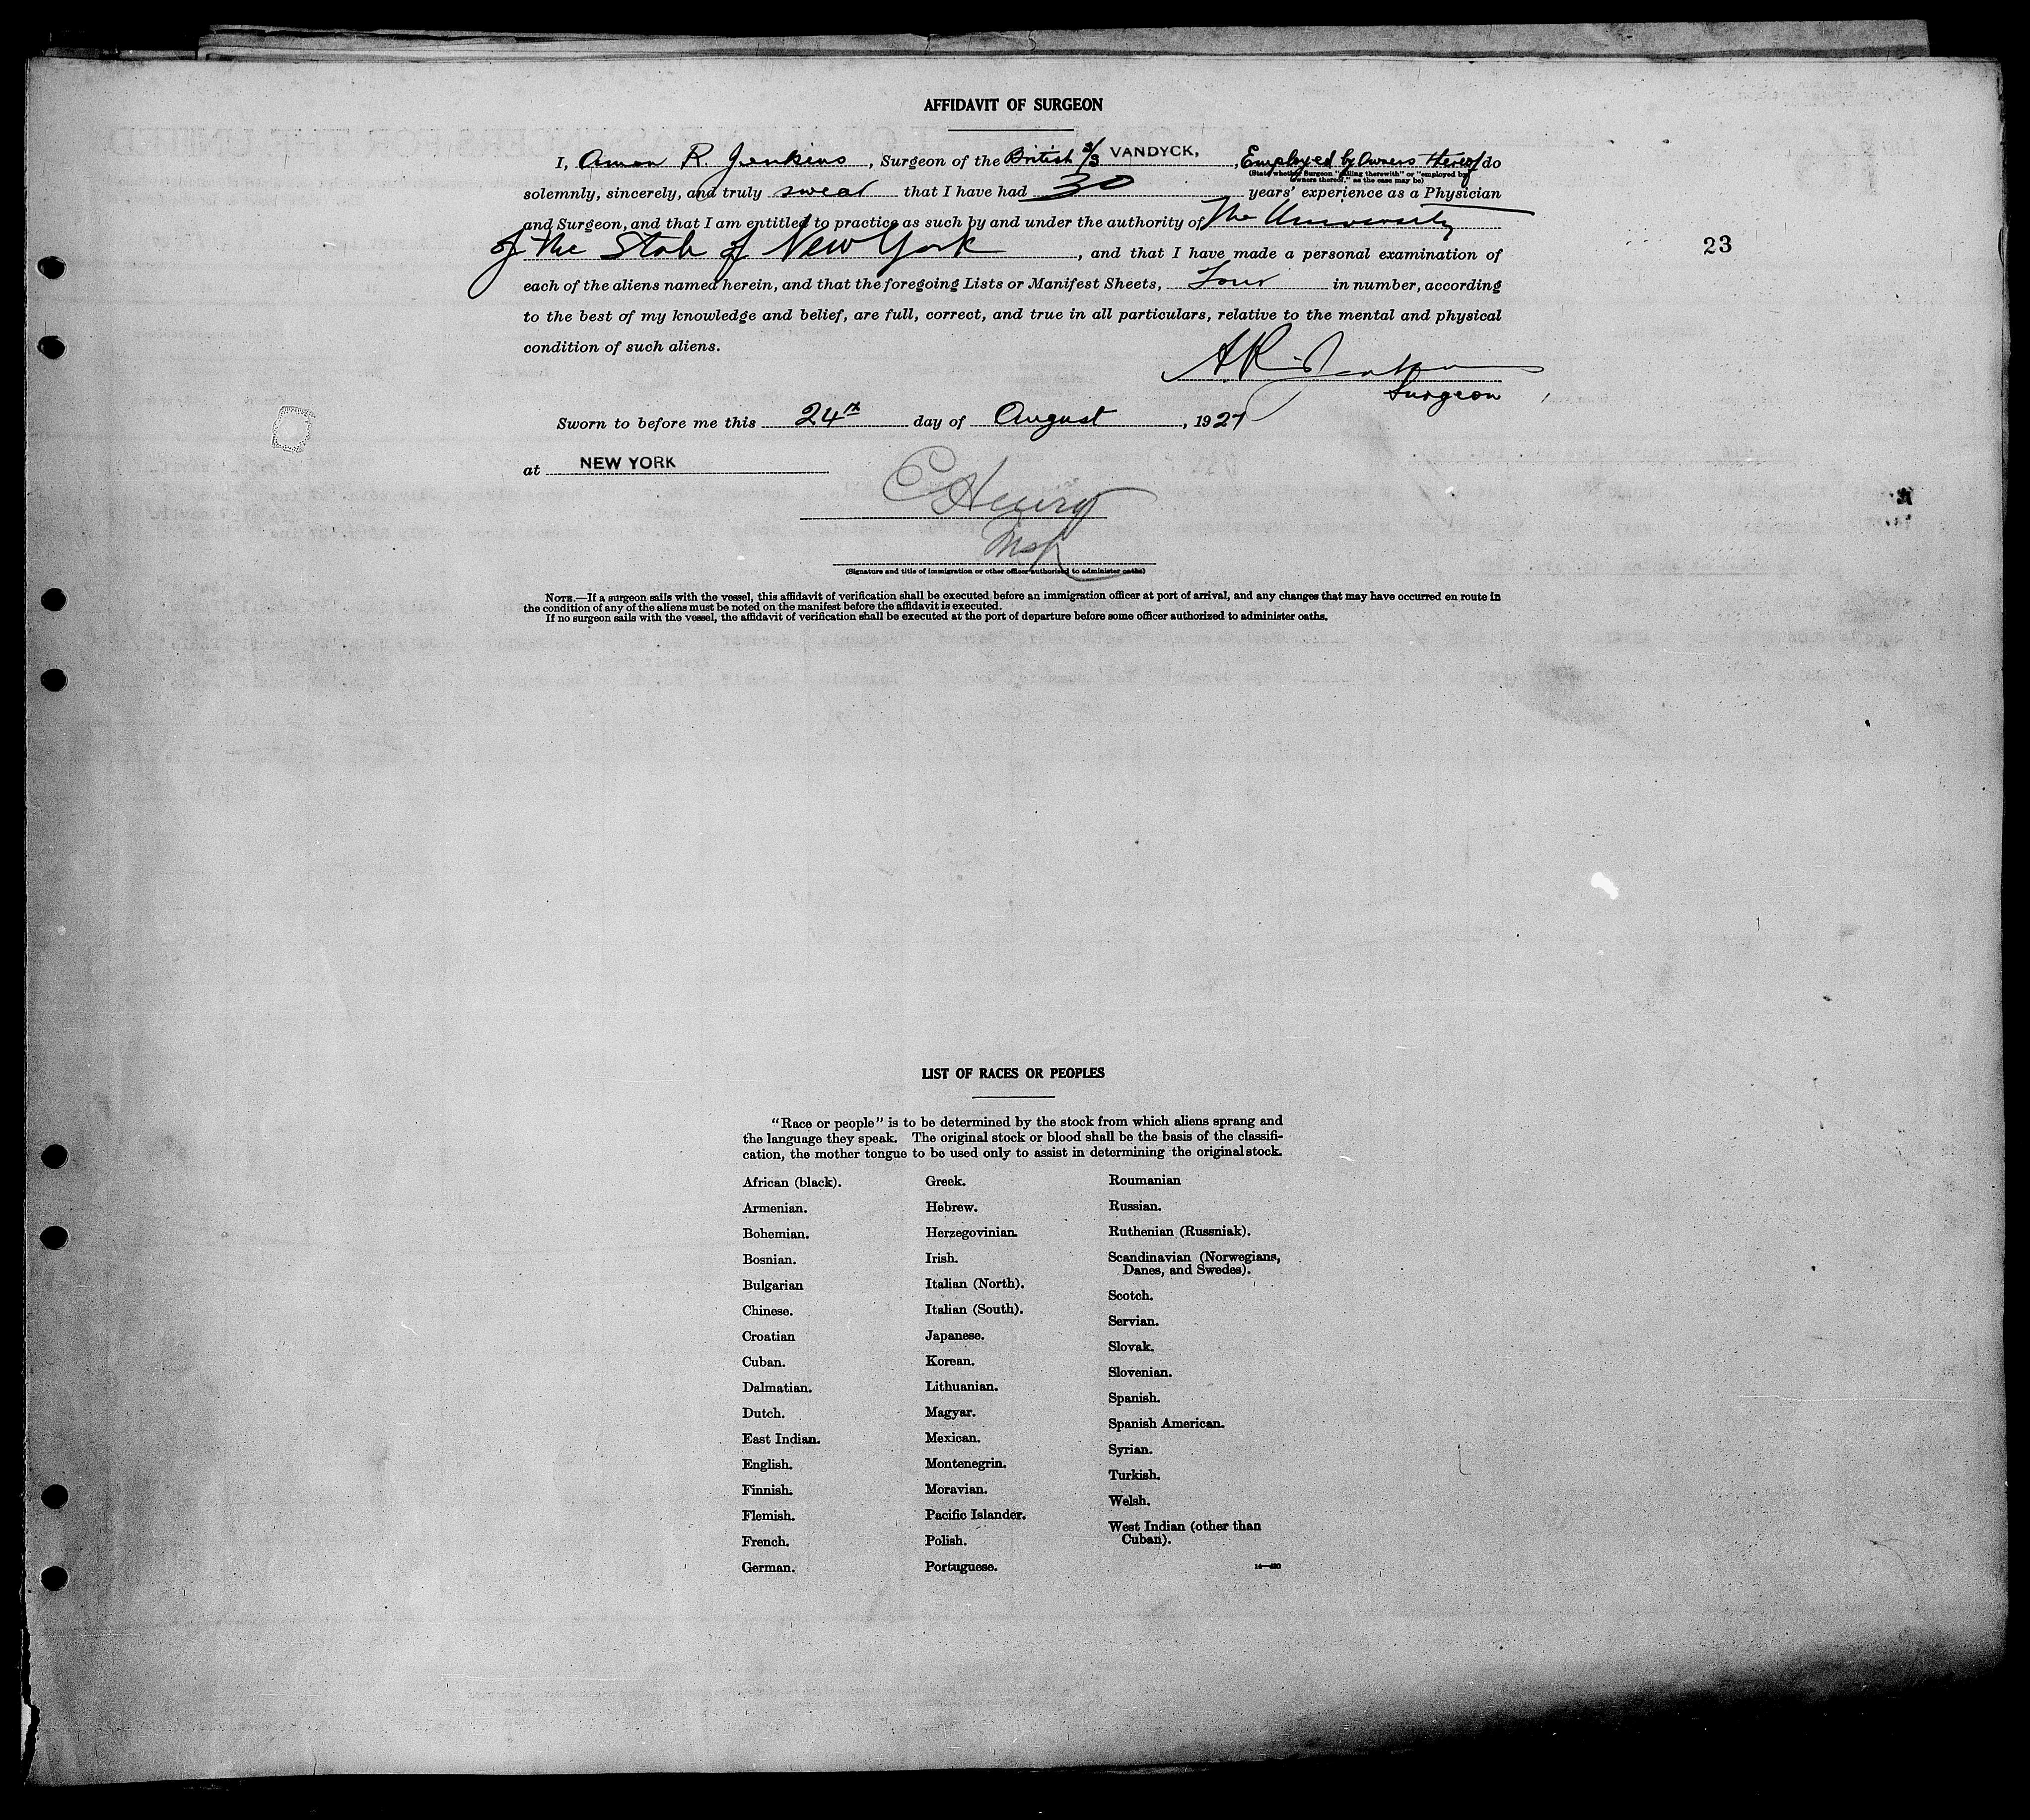 AFFIDAVIT OF SURGEON
I, Amon R. Jenkins, Surgeon of the British S/S VANDYCK, , Employed by Owners thereof do
(State whether Surgeon "sailing therewith" or "employed by
owners thereof," as the case may be)
solemnly, sincerely, and truly swear that I have had 30 years' experience as a Physician
and Surgeon, and that I am entitled to practice as such by and under the authority of The University
of the State of New York, and that I have made a personal examination of
23
each of the aliens named herein, and that the foregoing Lists or Manifest Sheets, Four in number, according
to the best of my knowledge and belief, are full, correct, and true in all particulars, relative to the mental and physical
condition of such aliens.
A R Jenkins
Surgeon
Sworn to before me this 24th day of August, 1927
at NEW YORK
C Henry
(Signature and title of immigration or other officer authorized to administer oaths)
NOTE.—If a surgeon sails with the vessel, this affidavit of verification shall be executed before an immigration officer at port of arrival, and any changes that may have occurred en route in
the condition of any of the aliens must be noted on the manifest before the affidavit is executed.
If no surgeon sails with the vessel, the affidavit of verification shall be executed at the port of departure before some officer authorized to administer oaths.
LIST OF RACES OR PEOPLES
"Race or people" is to be determined by the stock from which aliens sprang and
the language they speak. The original stock or blood shall be the basis of the classifi-
cation, the mother tongue to be used only to assist in determining the original stock.
African (black).
Armenian.
Bohemian.
Bosnian.
Bulgarian
Chinese.
Croatian
Cuban.
Dalmatian.
Dutch.
East Indian.
English.
Finnish.
Flemish.
French.
German.
Greek.
Hebrew.
Herzegovinian.
Irish.
Italian (North).
Italian (South).
Japanese.
Korean.
Lithuanian.
Magyar.
Mexican.
Montenegrin.
Moravian.
Pacific Islander.
Polish.
Portuguese.
Roumanian
Russian.
Ruthenian (Russniak).
Scandinavian (Norwegians,
Danes, and Swedes).
Scotch.
Servian.
Slovak.
Slovenian.
Spanish.
Spanish American.
Syrian.
Turkish.
Welsh.
West Indian (other than
Cuban).